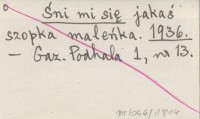 Śni mi się jakaś
szopka maleńka. 1936.
— Gaz. Podhala 1, nr 13.